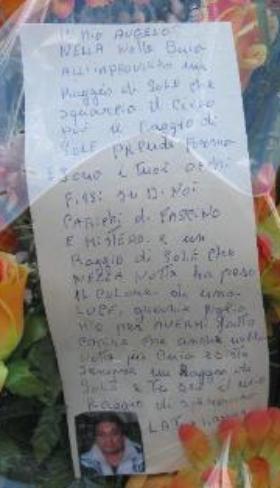 IL MIO ANGELO
NELLA NOTTE BUIA
ALL'IMPROVVISO UN
RAGGIO di SOLE CHE
SQUARCIA il CIELO
POI il RAGGIO di
SOLE PRENDE FORMA
SONO i TUOI OCCHI
FISSI SU DI NOI
CARICHI di FASCINO
E MISTERO. E un
RAGGIO di SOLE CHE
NELLA NOTTE ha preso
IL COLORE di una
LUCE, GRAZIE
MIO PER AVERMI fatto
CAPIRE CHE ANCHE nella
NOTTE più BUIA
RAGGIO di
SOLE E TU SEI il mio
RAGGIO di
LA TUA